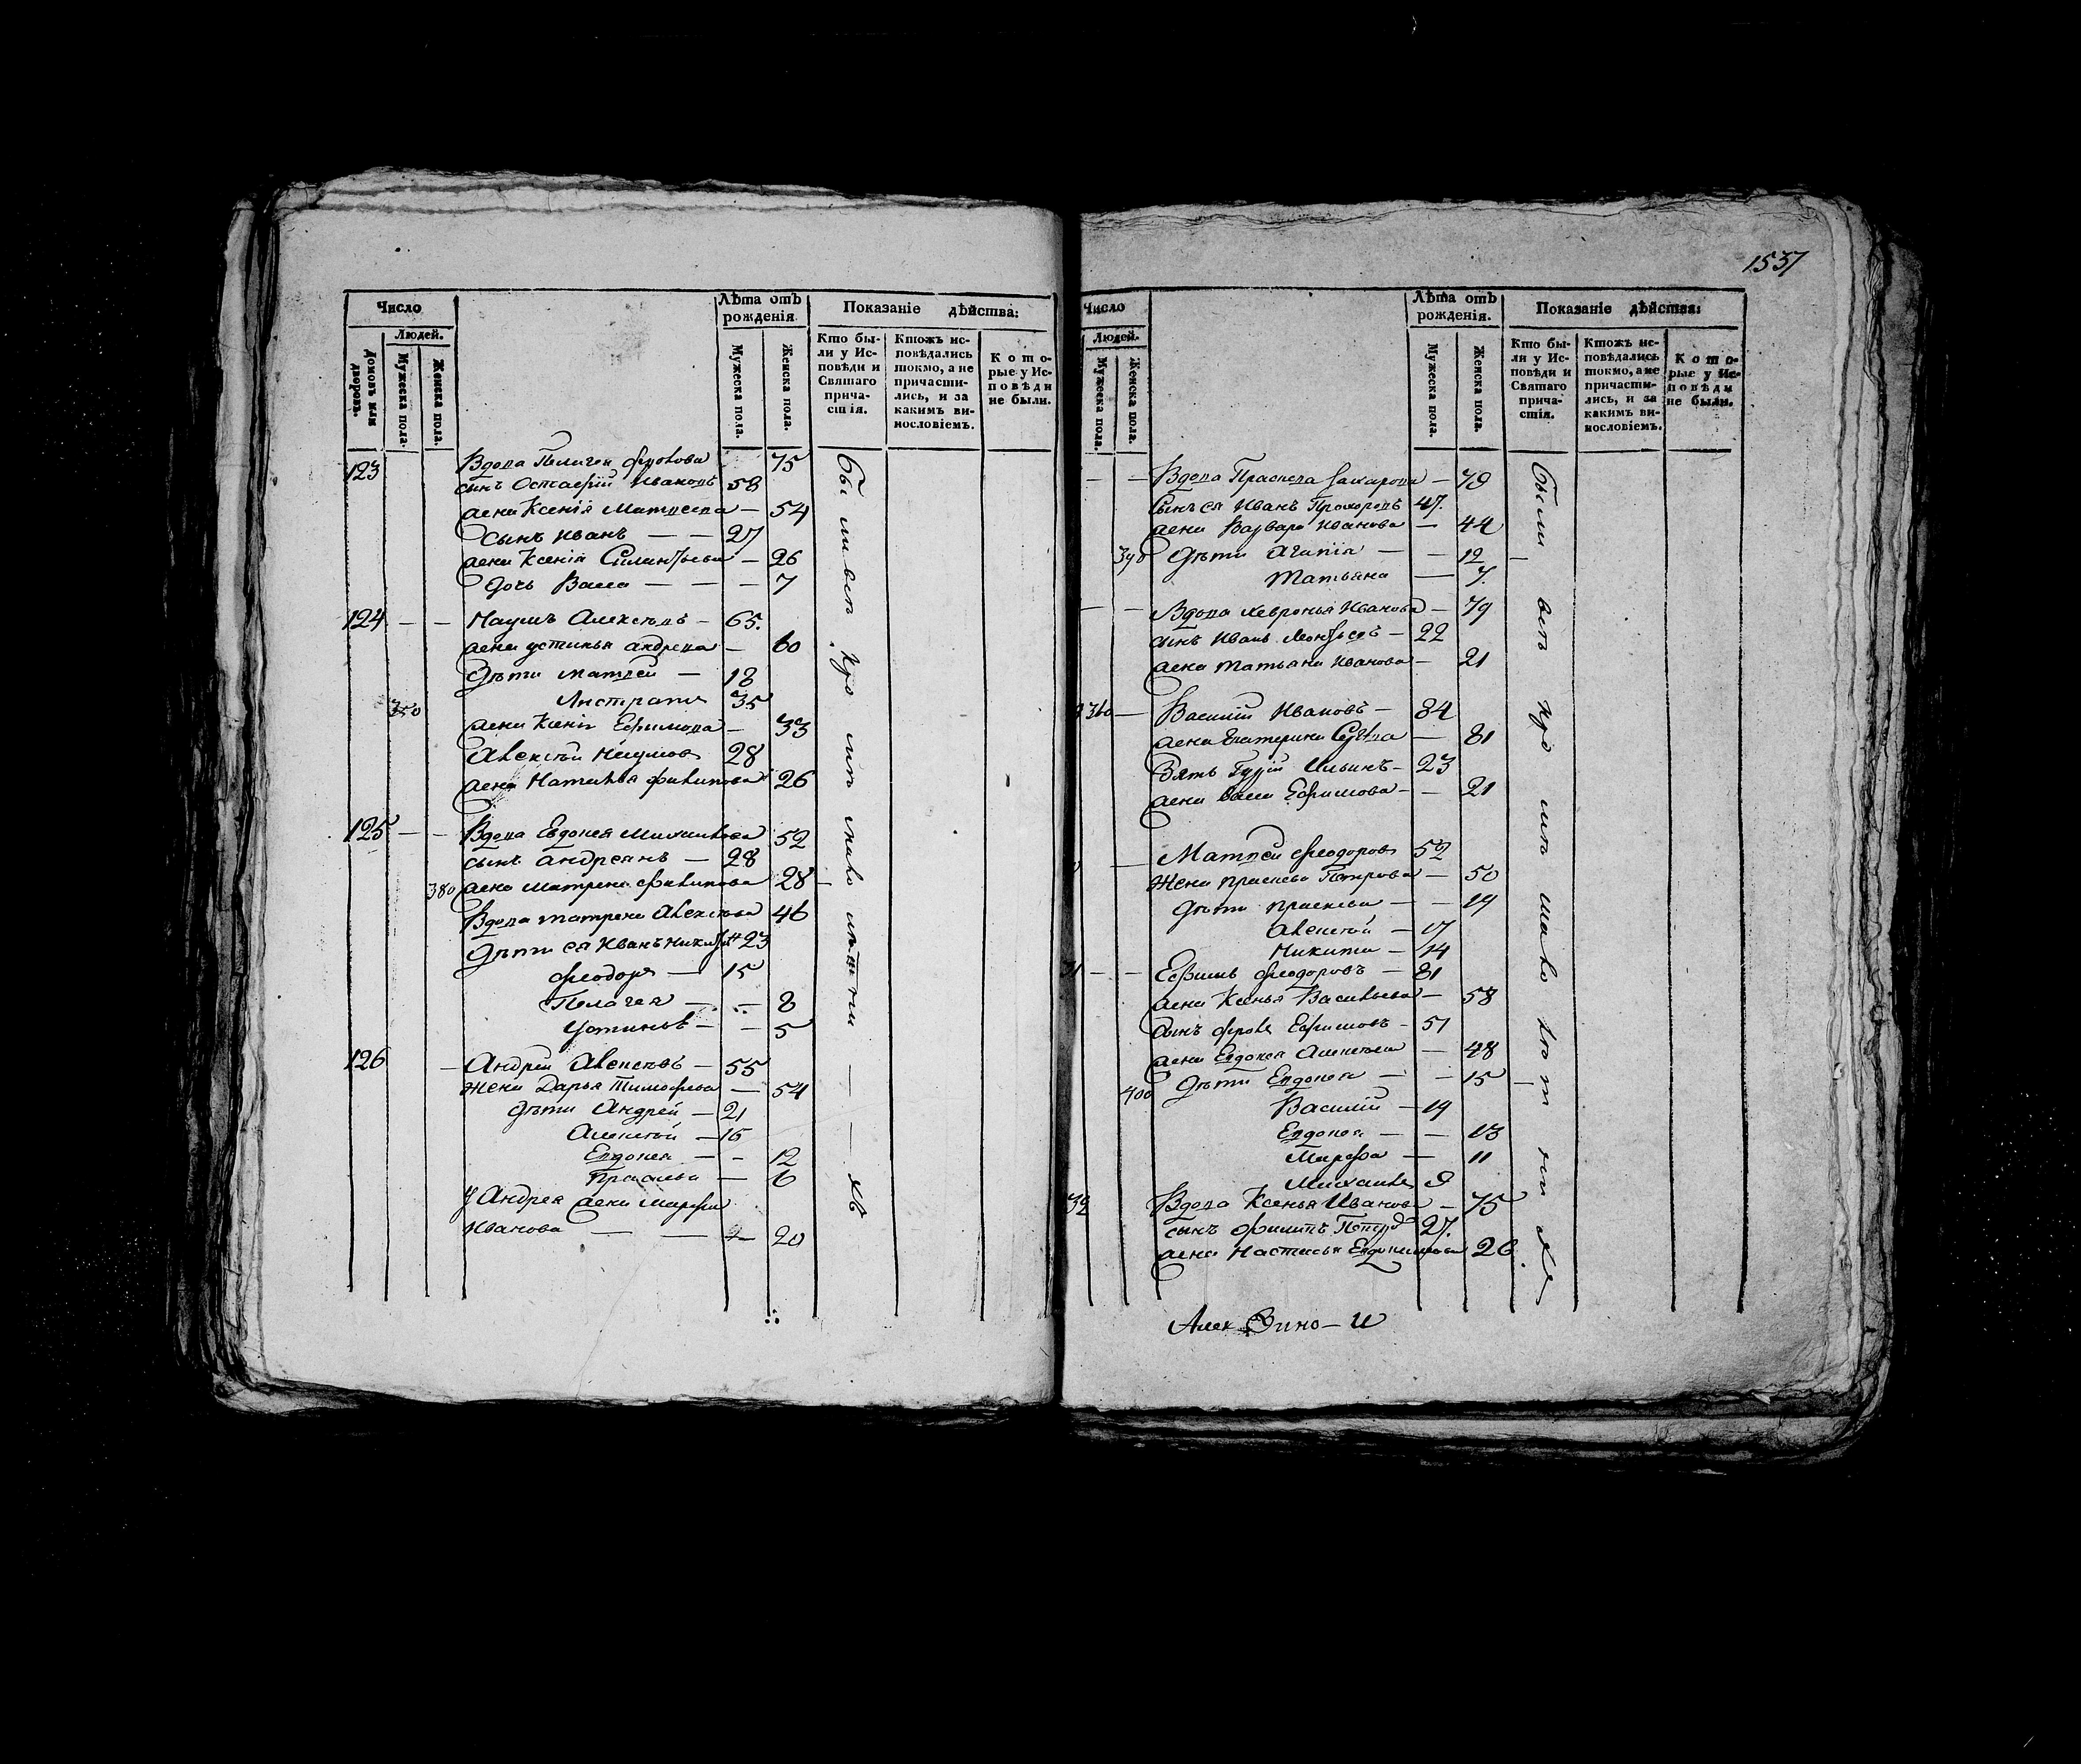 Число
Людей.
Домовъ или дворовъ.
Мужеска пола.
Женска пола.
Лѣта отъ рожденія.
Мужеска пола.
Женска пола.
Показаніе дѣйства:
Кто бы-
ли у Ис-
повѣди и
Святаго
прича-
стія.
Ктожъ ис-
повѣдались
токмо, а не
причасти-
лись, и за
какимъ ви-
нословіемъ.
Кото-
рые у Ис-
повѣди
не были.
123 Вдова Пелагея Фролова 75
сынъ Остафій Ивановъ 58
жена Ксенія Матвеева — 54
Сынъ Иванъ — — 27
жена Ксенія — 26
Дочь Васса — — — 7
124 — — Наумъ Алексѣвъ — 65.
жена Устинья Андрева — 60
Дѣти Матвей — 18
350 35
жена Ксенія Ефимова — 33
Алексѣй Наумовъ 28
жена Наталья Филипова 26
125 — — Вдова Евдокея Михайлова 52
сынъ Андреянъ — 28
380 жена Матрена Филипова 28 —
Вдова Матрена Алексѣва 46
Дѣти ея Иванъ 23
Феодоръ — 15
Пелагея — — 8
Устинья — — 5
126 — Андрей Алексѣвъ — 55
Жена Дарья Тимофева — 54
Дѣти Андрей — 21
Алексѣй — 15
Евдокея — — 12
Прасковья — 6
У Андрея жена Марфа
Иванова — — 20
Были всѣ
1537
Число
Людей.
Мужеска пола.
Женска пола.
Лѣта отъ рожденія.
Мужеска пола.
Женска пола.
Показаніе дѣйства:
Кто бы-
ли у Ис-
повѣди и
Святаго
прича-
стія.
Ктожъ ис-
повѣдались
токмо, а не
причасти-
лись, и за
какимъ ви-
нословіемъ.
Кото-
рые у Ис-
повѣди
не были.
— — Вдова Прасковья Захарова — 79
Сынъ ея Иванъ Прохоровъ 47.
жена Варвара Иванова — 44
390 Дѣти Агапія — — 12 —
Татьяна — 7.
— — Вдова Хевронья Иванова — 79
сынъ Иванъ Леонтьевъ — 22
жена Татьяна Иванова — 21
360 — Василій Ивановъ — 84
жена Екатерина — 81
Зять Гурій Ильинъ — 23
жена Васса Ефимова — — 21
— Матвей Феодоровъ 52
Жена Прасковья Петрова — 50
Дѣти Прасковья — — 19
Алексѣй — 17
Никита — 14
31 — — Ефимъ Феодоровъ — 81
жена Ксенья Васильева — 58
сынъ Фролъ Ефимовъ — 51
жена Евдокея Алексѣева — 48
400 Дѣти Евдокея — — 15 —
Василій — 14
Евдокея — — 13
Марфа — 11
Михаилъ 9
32 Вдова Ксенья Иванова — 75
сынъ Филипъ 27.
жена Настасья Евдокимова 26.
Были всѣ
Алек Вино — и